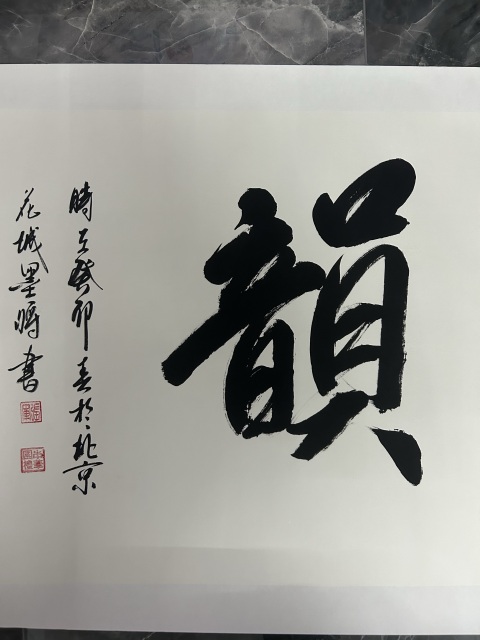 韻
時在癸卯春於北京
花城墨将書